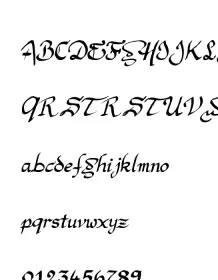 ABCDEFGHIJKL
QRSTRSTUV
abcdefghijklmno
pqrstuvwxyz
0123456789